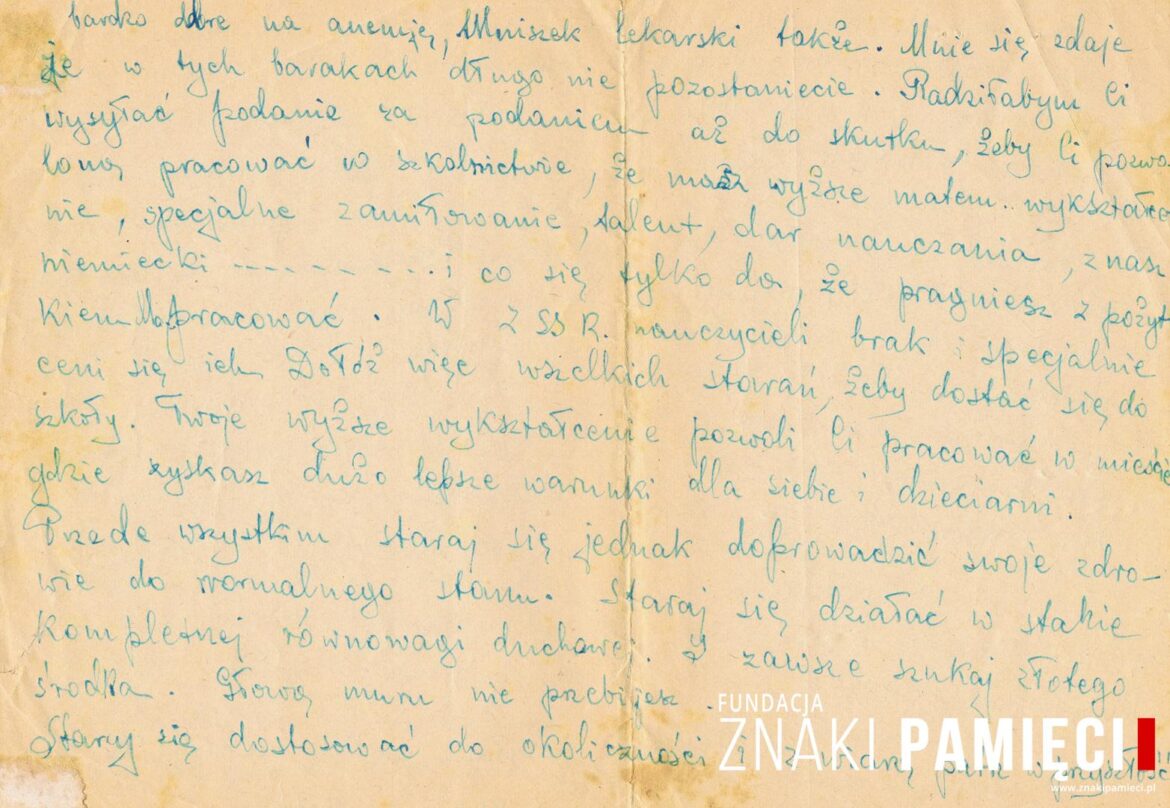 bardzo dobre na anemję, Mniszek lekarski także. Mnie się zdaje
że w tych barakach długo nie pozostaniecie. Radziłabym Ci
wysyłać podanie za podaniem aż do skutku, żeby Ci pozwo
lono pracować w szkolnictwie, że masz wyższe matem. wykształce
nie, specjalne zamiłowanie, talent, dar nauczania, znasz
niemiecki --------- i co się tylko da, że pragniesz z pożyt
kiem pracować. W ZSSR. nauczycieli brak i specjalnie
ceni się ich Dołóż więc wszelkich starań, żeby dostać się do
szkoły. Twoje wyższe wykształcenie pozwoli Ci pracować w mieście
gdzie zyskasz dużo lepsze warunki dla siebie i dzieciarni.
Przede wszystkim staraj się jednak doprowadzić swoje zdro-
wie do normalnego stanu. Staraj się działać w stanie
kompletnej równowagi duchowej. I zawsze szukaj złotego
środka. Głową muru nie przebijesz.
Staraj się dostosować do okoliczności i z wiarą patrz w przyszłość
FUNDACJA
ZNAKI PAMIĘCI
www.znakipamieci.pl